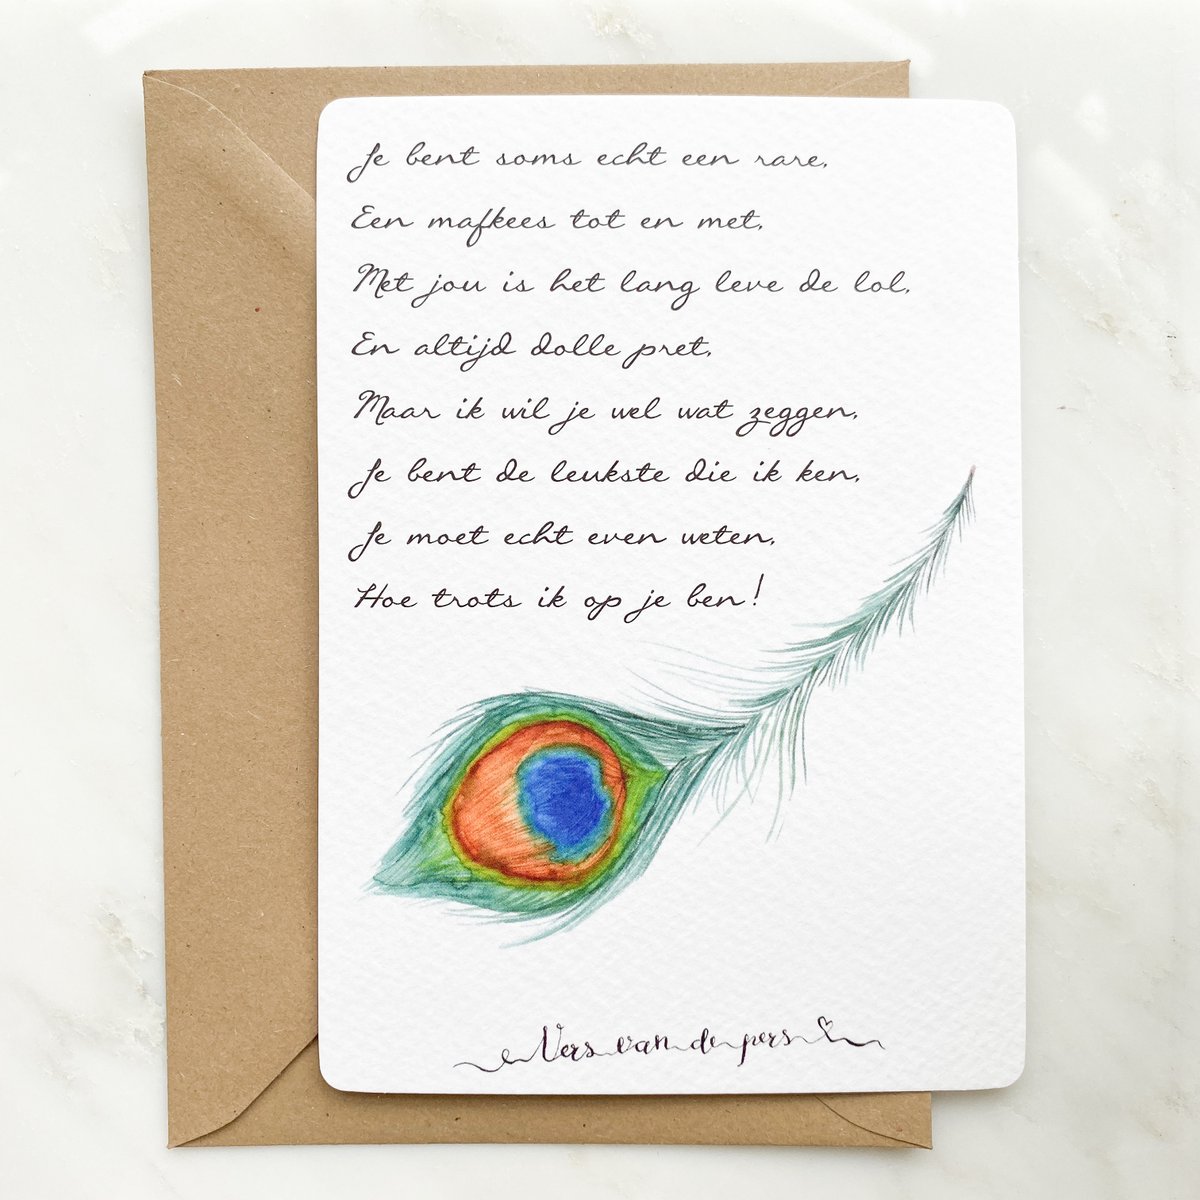 Je bent soms echt een rare,
Een mafkees tot en met,
Met jou is het lang leve de lol,
En altijd dolle pret,
Maar ik wil je wel wat zeggen,
Je bent de leukste die ik ken,
Je moet echt even weten,
Hoe trots ik op je ben!
Vers van de pers